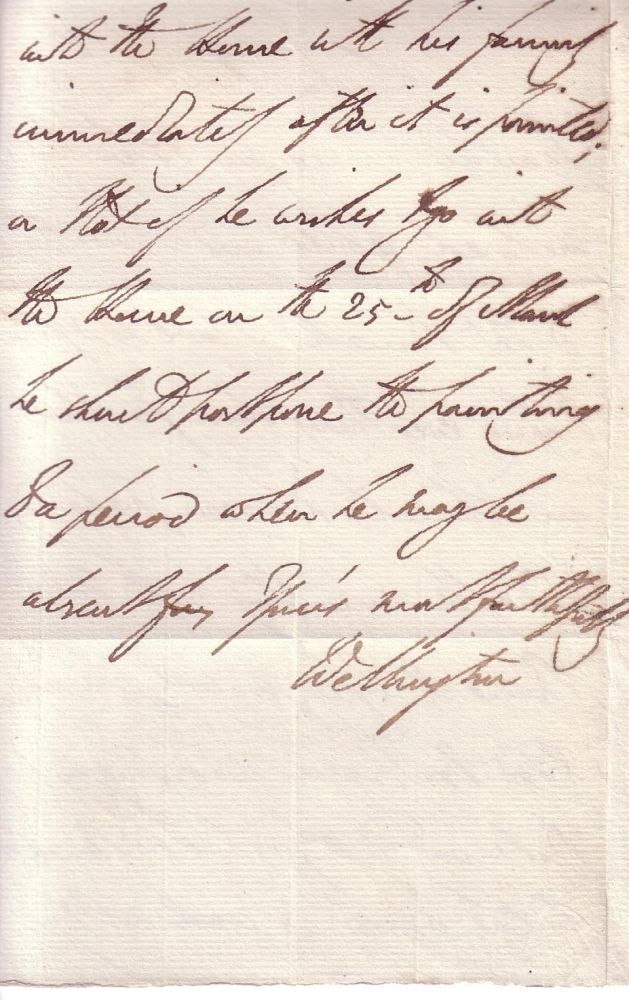 into the House with his family
immediately after it is painted;
or that if he wishes to go into
the House on the 25th of March
he should postpone the painting
to a period when he may be
absent from Yours most faithfully
Wellington